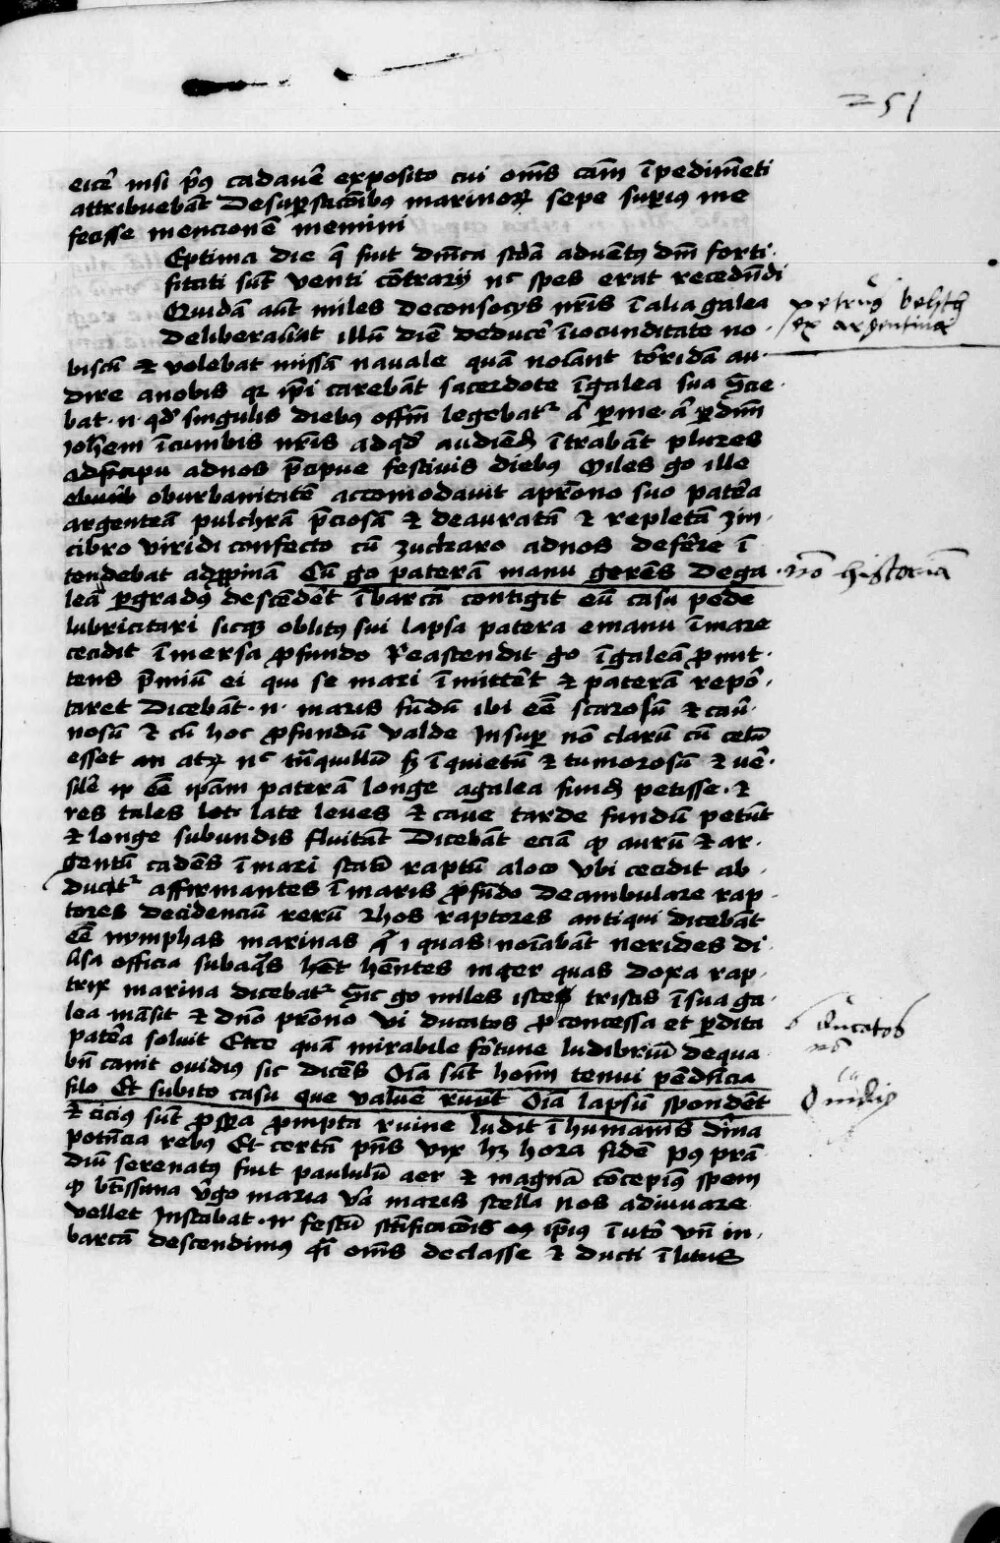 251
eicē nisi p̄us cadavē exposito cui om̄s cām īpedimēti
attribuebāt De sup̲sticōibus marinoꝝ sepe sup̲ius me
fecisse mencionē memini
Eptima die q̄ fuit dn̄ica scd̄a advent9 dn̄i forti-
ficati sūt venti cōtrarij nc spes erat recedēdi
Quidā aūt miles de consocijs nr̄is ī alia galea
petrus
ex argentina
deliberav̄at illū diē deducē ī iocunditate no-
biscū et volebat missā navalē quā noīant tōridā au-
dire a nobis qr ip̄i carebāt sacerdote ī galea sua Scie-
bat .n. qd̄ singulis diebus offm̄ legebatr a᷑ p̲ me a᷑ p̲ dn̄m
Joh̄em ī cumbis nr̄is ad qd̄ audiend̄ ītrabāt plures
ad nos p̄cipue festivis diebus Miles g̊o ille
ob urbanitatē accomodavit a pr̄ono suo patēa
argenteā pulchrā p̄ciosā et deauratā et repletā zin-
cibro viridi confecto cū zucharo ad nos defēre ī
tendebat ad p̲pinā Cū g̊o paterā manu gerēs de ga-
nō historiā
leā p̲ gradus descēdēt ī barcā contigit eū casu pede
lubricitari sicq3 oblitus sui lapsa patera e manu ī mare
cecidit īmersa p̲fundo Reascendit g̊o ī galeā p̲mit-
tens p̄miū ei qui se mari īmittēt et paterā repō-
taret Dicebāt .n. maris fūdū ibi eē scarosū et cav̄-
nosū et cū hoc p̲fundū valde Insup̲ nō clarū cū celū
esset an atꝝ nc tn̄quillū s̄ īquietū et tumorosū et vē-
silē ꝙ eē ip̄am paterā longe a galea fund̄ petisse et
res tales late leves et cave tarde fundū petūt
et longe sub undis fluitāt Dicebāt eciā ꝙ aurū et ar-
gentū cadēs ī mari statī raptū a loco ubi cecidit ab-
ducitr affirmantes ī maris p̲fūdo deambulare rap-
tores decidenciū rerū et hos raptores antiqui dicebāt
eē nymphas marinas q̄s quas noīabāt nerides di-
v̄sa officia sub aq̄s hēntes inter quas doxa rap-
trix marina dicebatr Sic g̊o miles iste tristis ī sua ga-
lea māsit et dn̄o pr̄ono vi ducatos p̲ concessa et p̲dita
6 ducatos
nō
patēa soluit Ecce quā mirabile fōrtune ludibriū de qua
bn̄ canit ovidius sic dicēs Oīa sūt hoīm tenui pēdēcia
Ovidius
filo Et subito casu que valuē ruūt Oīa lapsum spondēt
et cicius sūt p̲sp̲a p̲mpta ruine Ludit ī humanis dīna
potēcia rebus Et certā p̄ns vix h3 hora fidē p9 prā-
diū serenatus fuit paululū aer et magnā cōcepimus spem
ꝙ bt̄issima v̄go maria v̄a maris stella nos adiuvare
vellet Instabat .n. festū sc̄ificacōis eius ip̄ius
barcā descendimus om̄s de classe et ducti ī litus